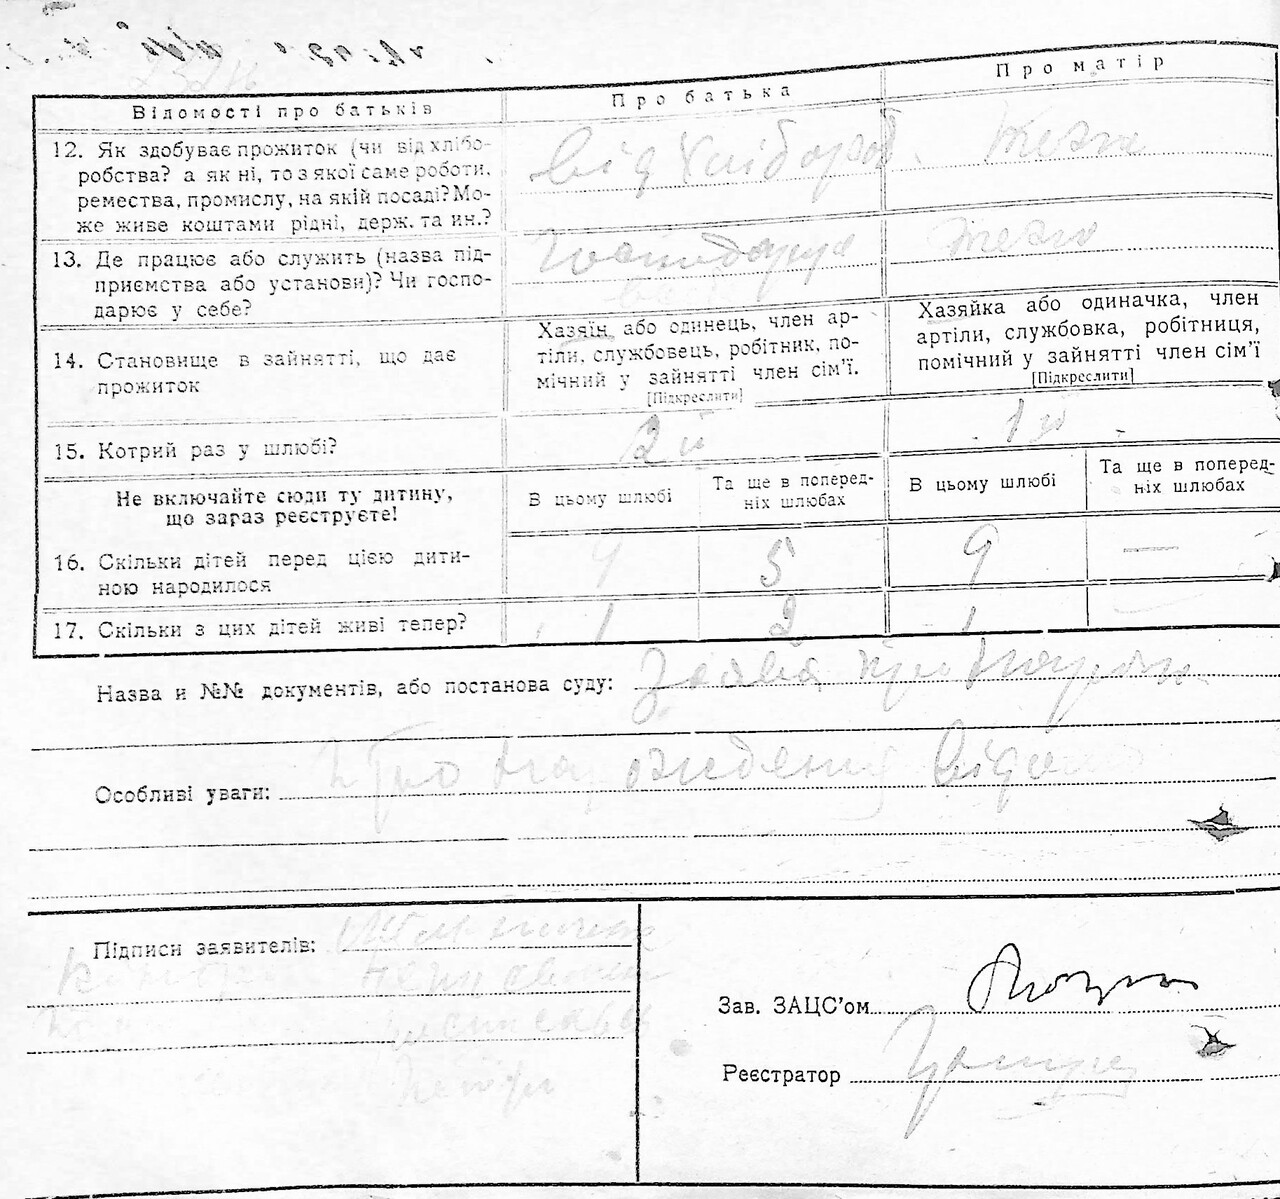 Відомості про батьків
Про батька
Про матір
12. Як здобуває прожиток (чи від хлібо-
робства? а як ні, то з якої саме роботи,
ремества, промислу, на якій посаді? Мо-
же живе коштами рідні, держ. та ин.?
Від хлібороб.
теж
13. Де працює або служить (назва під-
приємства або установи)? Чи госпо-
дарює у себе?
Господарує
теж
14. Становище в зайнятті, що дає
прожиток
Хазяїн, або одинець, член ар-
тіли, службовець, робітник, по-
мічний у зайнятті член сім'ї.
[Підкреслити]
Хазяйка або одиначка, член
артіли, службовка, робітниця,
помічний у зайнятті член сім'ї
[Підкреслити]
15. Котрий раз у шлюбі?
2й
1й
Не включайте сюди ту дитину,
що зараз реєструєте!
В цьому шлюбі
Та ще в поперед-
ніх шлюбах
В цьому шлюбі
Та ще в поперед-
ніх шлюбах
16. Скільки дітей перед цією дити-
ною народилося
9
5
9
—
17. Скільки з цих дітей живі тепер?
1
2
1
Назва и №№ документів, або постанова суду:
Заява про
Особливі уваги:
Про
Підписи заявителів:
Зав. ЗАЦС'ом
Реєстратор